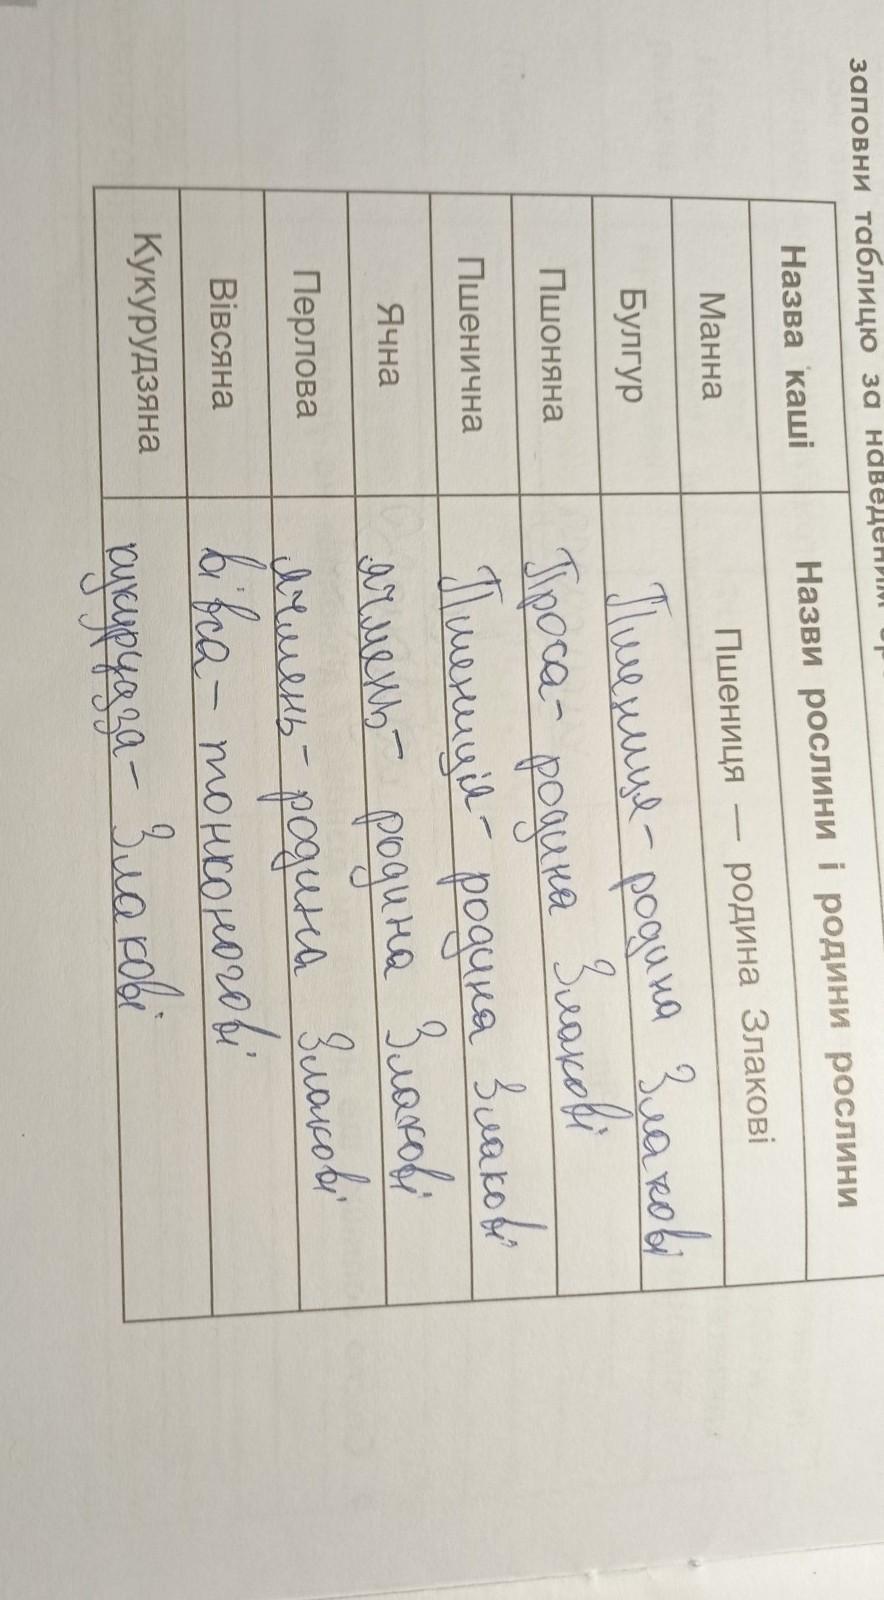 заповни таблицю за наведеним
Назва каші Назви рослини і родини рослини
Манна Пшениця — родина Злакові
Булгур Пшениця - родина Злакові
Пшоняна Проса - родина Злакові
Пшенична Пшениція - родина Злакові
Ячна ячмень - родина Злакові
Перлова ячмень - родина Злакові
Вівсяна вівса - тонконогові
Кукурудзяна кукурудза - Злакові